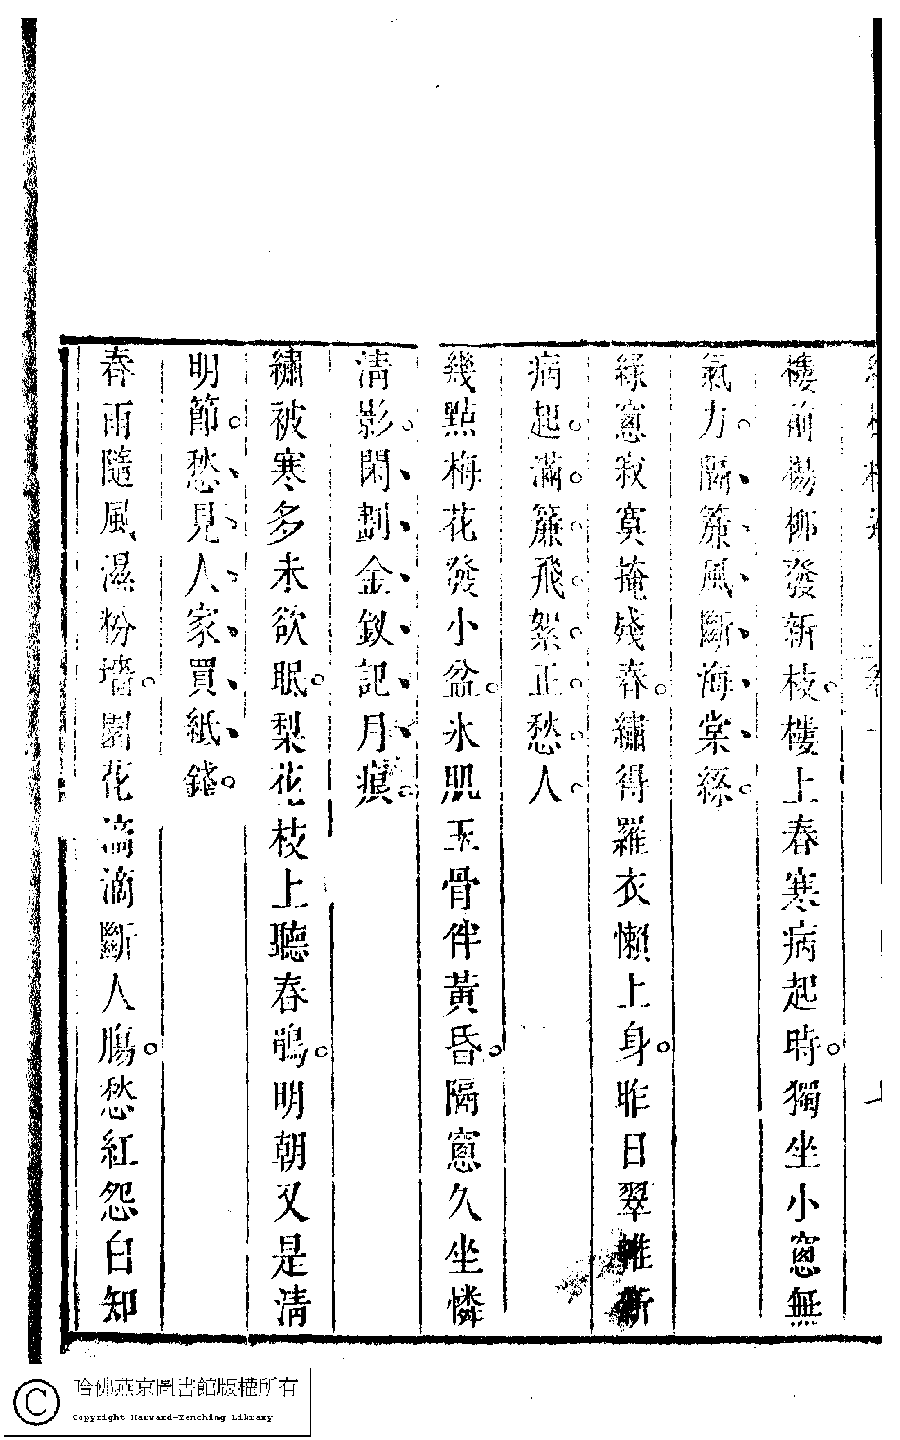 樓前楊柳發新枝。樓上春寒病起時。獨坐小窻無
氣力。隔簾風斷海棠絲。
綠窻寂寞掩殘春。繡得羅衣懶上身。昨日翠帷新
病起。滿簾飛絮正愁人。
幾點梅花發小盆。氷肌玉骨伴黃昏。隔窻久坐憐
清影。閑劃金釵記月痕。
繡被寒多未欲眠。梨花枝上聽春鵑。明朝又是清
明節。愁見人家買紙錢。
春雨隨風濕粉墻。園花滴滴斷人腸。愁紅怨白知
哈佛燕京圖書館版權所有
Copyright Harvard-Yenching Library